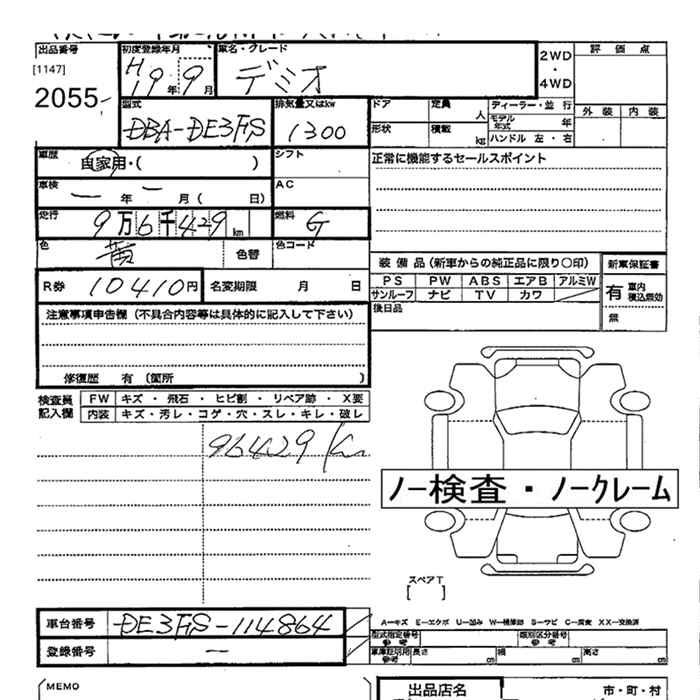 出品番号
[1147]
2055
初度登録年月
H19年 9月
車名・グレード
デミオ
2WD
・
4WD
評価点
外装 内装
型式
DBA-DE3FS
排気量又はkw
1300
ドア
定員 人
ディーラー・並行
モデル年式 年
形状
積載 kg
ハンドル 左・右
車歴
自家用・( )
シフト
正常に機能するセールスポイント
車検
— 年 — 月( 日)
AC
走行
9万6千429km
燃料
G
色
黄
色替
色コード
装備品(新車からの純正品に限り○印)
新車保証書
PS PW ABS エアB アルミW
サンルーフ ナビ TV カワ
有 車内積込無効
無
R券 10410円
名変期限 月 日
後日品
注意事項申告欄(不具合内容等は具体的に記入して下さい)
修復歴 有(箇所 )
検査員記入欄
FW キズ・飛石・ヒビ割・リペア跡・X要
内装 キズ・汚レ・コゲ・穴・スレ・キレ・破レ
96429 Km
ノー検査・ノークレーム
スペアT
[ ]
車台番号
DE3FS-114864
登録番号
—
A—キズ E—エクボ U—凹み W—補修跡 S—サビ C—腐食 XX—交換済
型式指定番号 参考
類別区分番号 参考
車庫証明用 参考
長さ cm
幅 cm
高さ cm
MEMO
出品店名
市・町・村